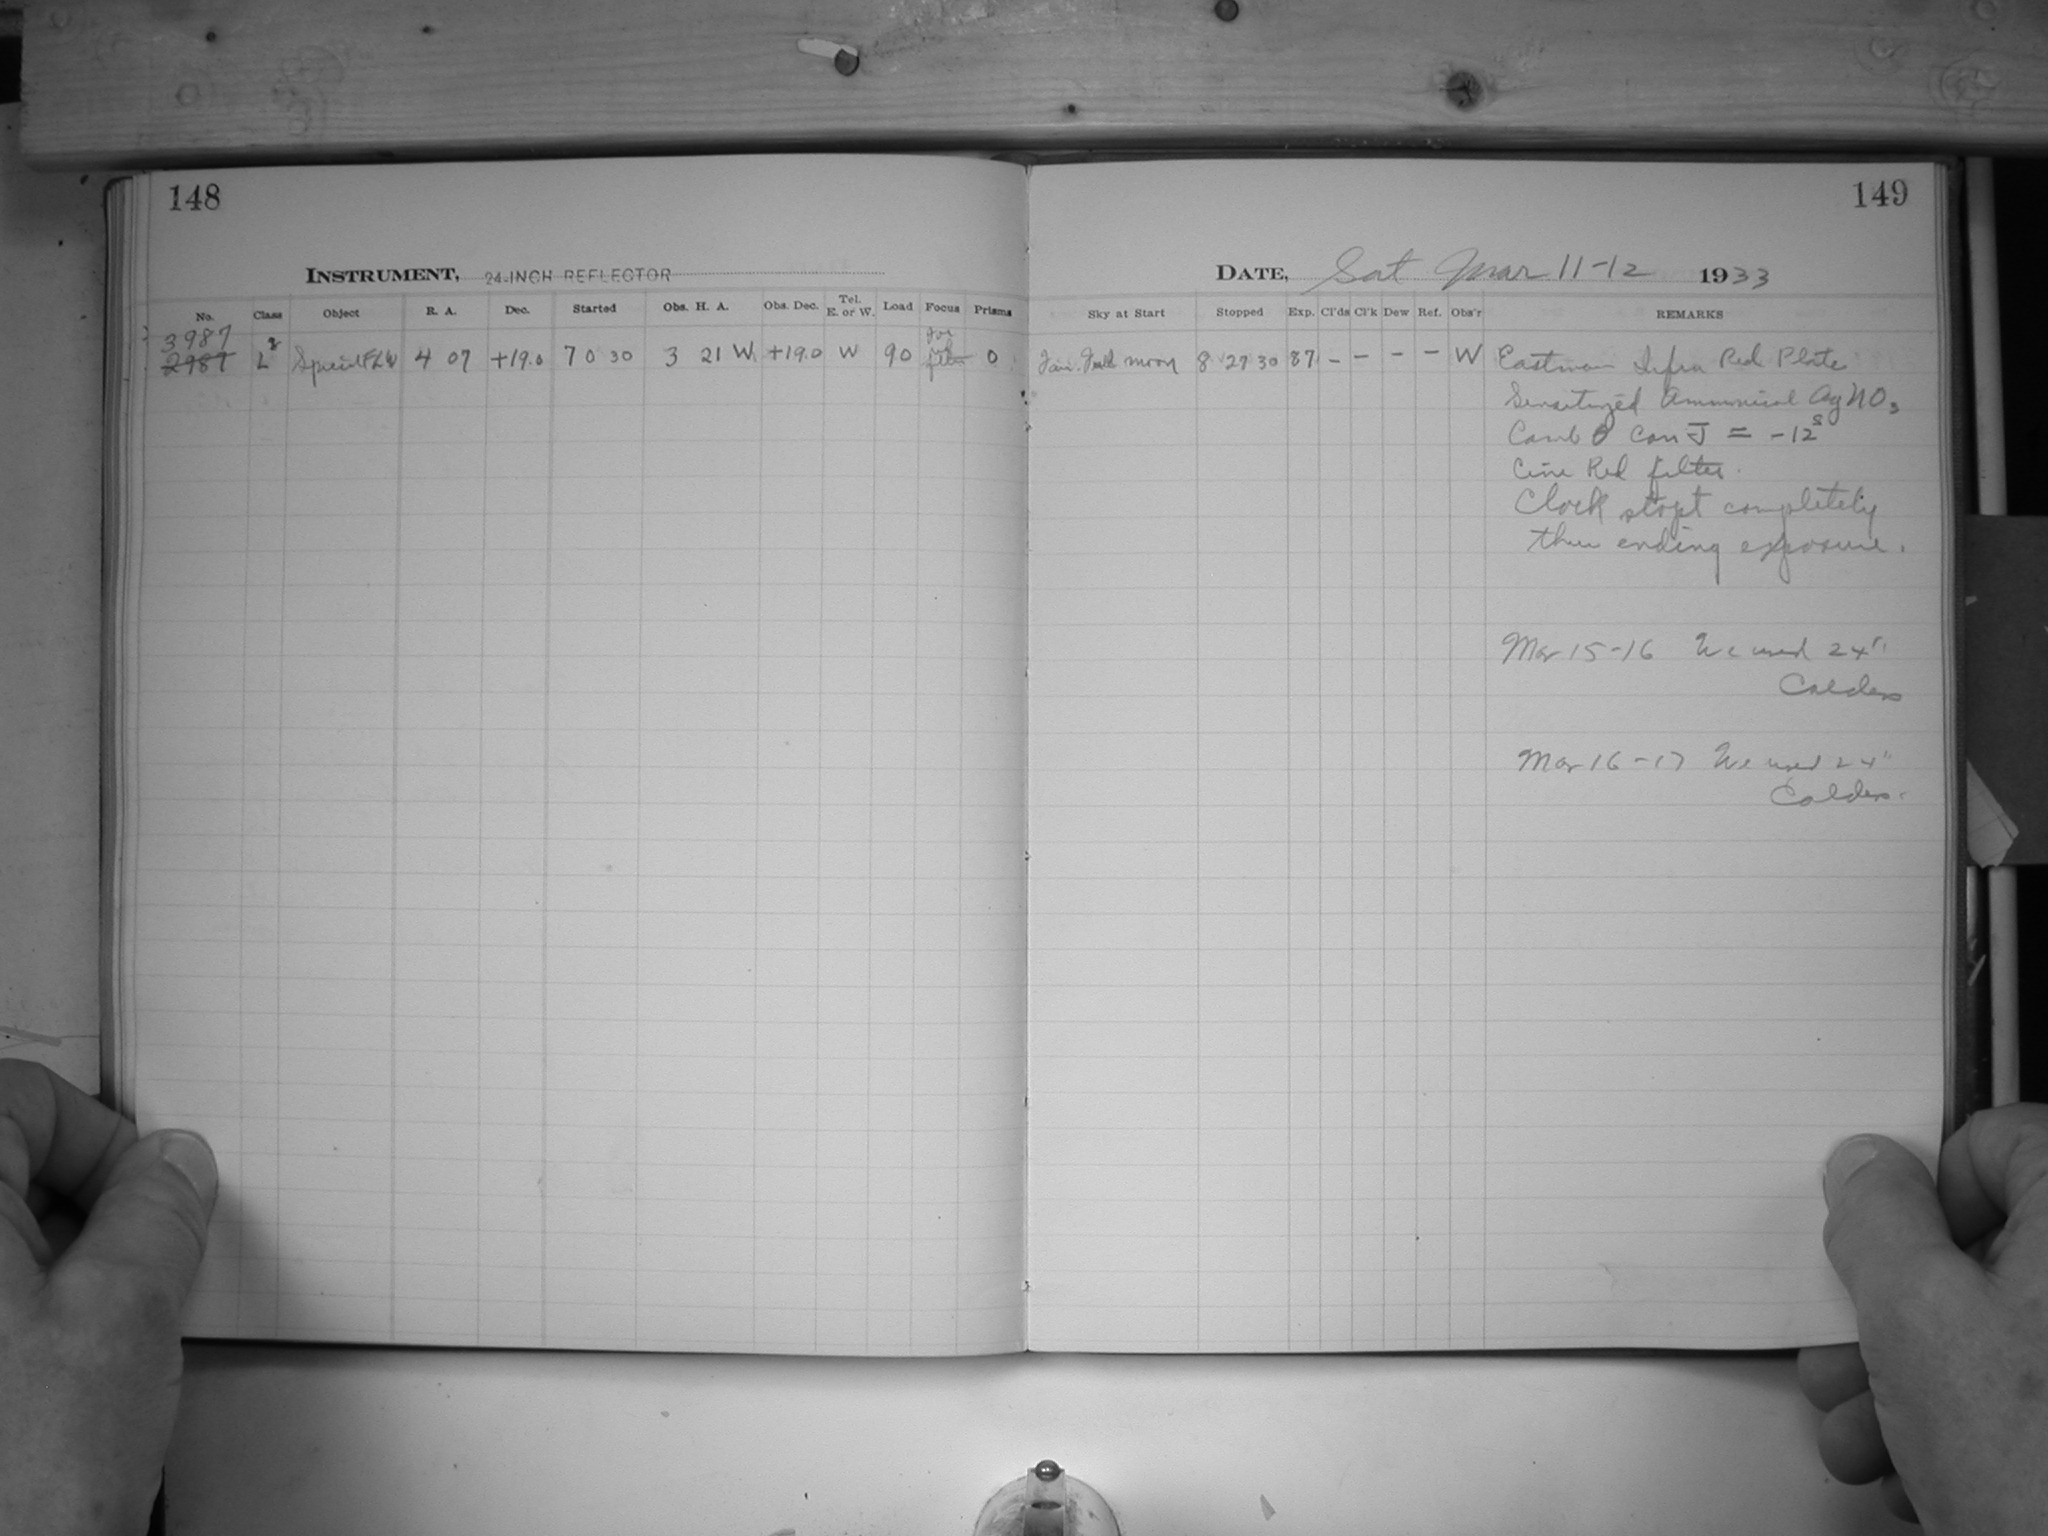 148
149
INSTRUMENT, 24-INCH REFLECTOR
DATE, Sat Mar 11-12 1933
No. Class Object R. A. Dec. Started Obs. H. A. Obs. Dec. Tel. E. or W. Load Focus Prisms
Sky at Start Stopped Exp. Cl'ds Cl'k Dew Ref. Obs'r REMARKS
3987 8 for
2987 L Special FLW 4 07 +19.0 7 0 30 3 21 W +19.0 W 90 red filter 0
Fair. Full moon 8 27 30 87 - - - - W Eastman Infra Red Plate
Sensitized Ammonical AgNO3
Camb θ Corr J = -12s
Cine Red filter.
Clock stopt completely
thus ending exposure.
Mar 15-16 We used 24"
Calder
Mar 16-17 We used 24"
Calder.